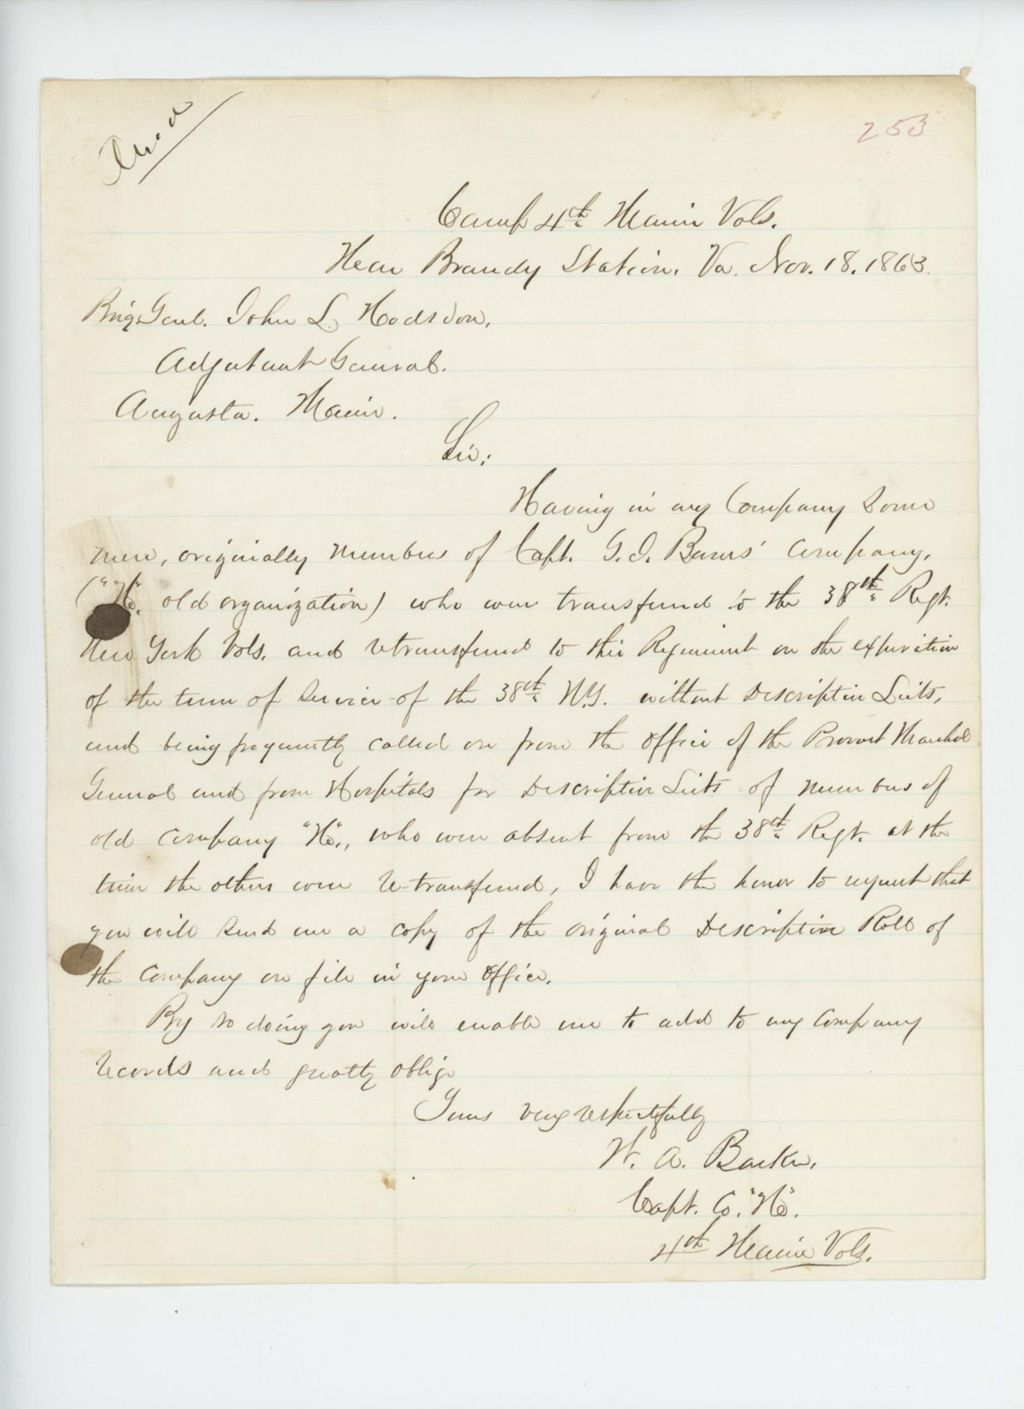 253
Camp 4th Maine Vols.
Near Brandy Station, Va. Nov. 18. 1863.
Brig. Genl. John L. Hodsdon,
Adjutant General.
Augusta. Maine.
Sir;
Having in my Company some
men, originally members of Capt. G. I. Burns' Company,
("H", old organization) who were transferred to the 38th Regt.
New York Vols. and retransferred to this Regiment on the expiration
of the term of service of the 38th N.Y. without Descriptive Lists,
and being frequently called on from the office of the Provost Marshal
General and from Hospitals for Descriptive Lists of members of
old Company "H", who were absent from the 38th Regt. at the
time the others were re-transferred, I have the honor to request that
you will send me a copy of the original Descriptive Roll of
the Company on file in your office.
By so doing you will enable me to add to my Company
records and greatly oblige
Yours very respectfully
W. A. Barker,
Capt. Co. "H".
4th Maine Vols.